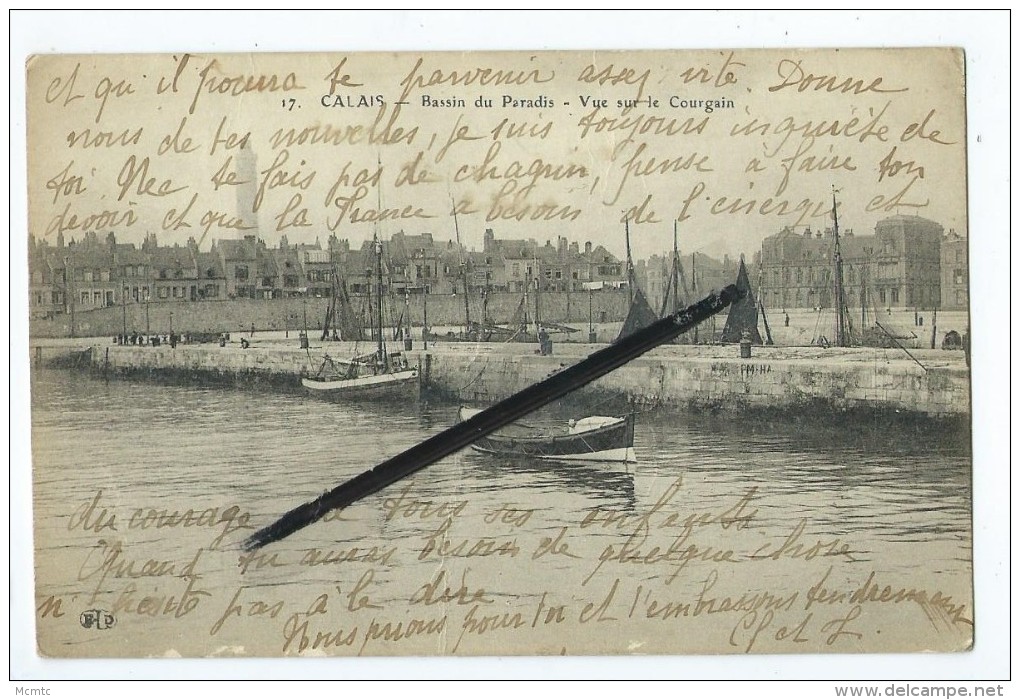 et qui il pourra te parvenir assez vite. Donne
17. CALAIS — Bassin du Paradis - Vue sur le Courgain
nous de tes nouvelles, je suis toujours inquiète de
toi. Ne te fais pas de chagrin, pense à faire ton
devoir et que la France a besoin de l'énergie et
PM·HA
du courage de tous ses enfants
Quand tu auras besoin de quelque chose
n'hésite pas à le dire
ELD
Nous prions pour toi et t'embrassons tendrement
Mcmtc
www.delcampe.net